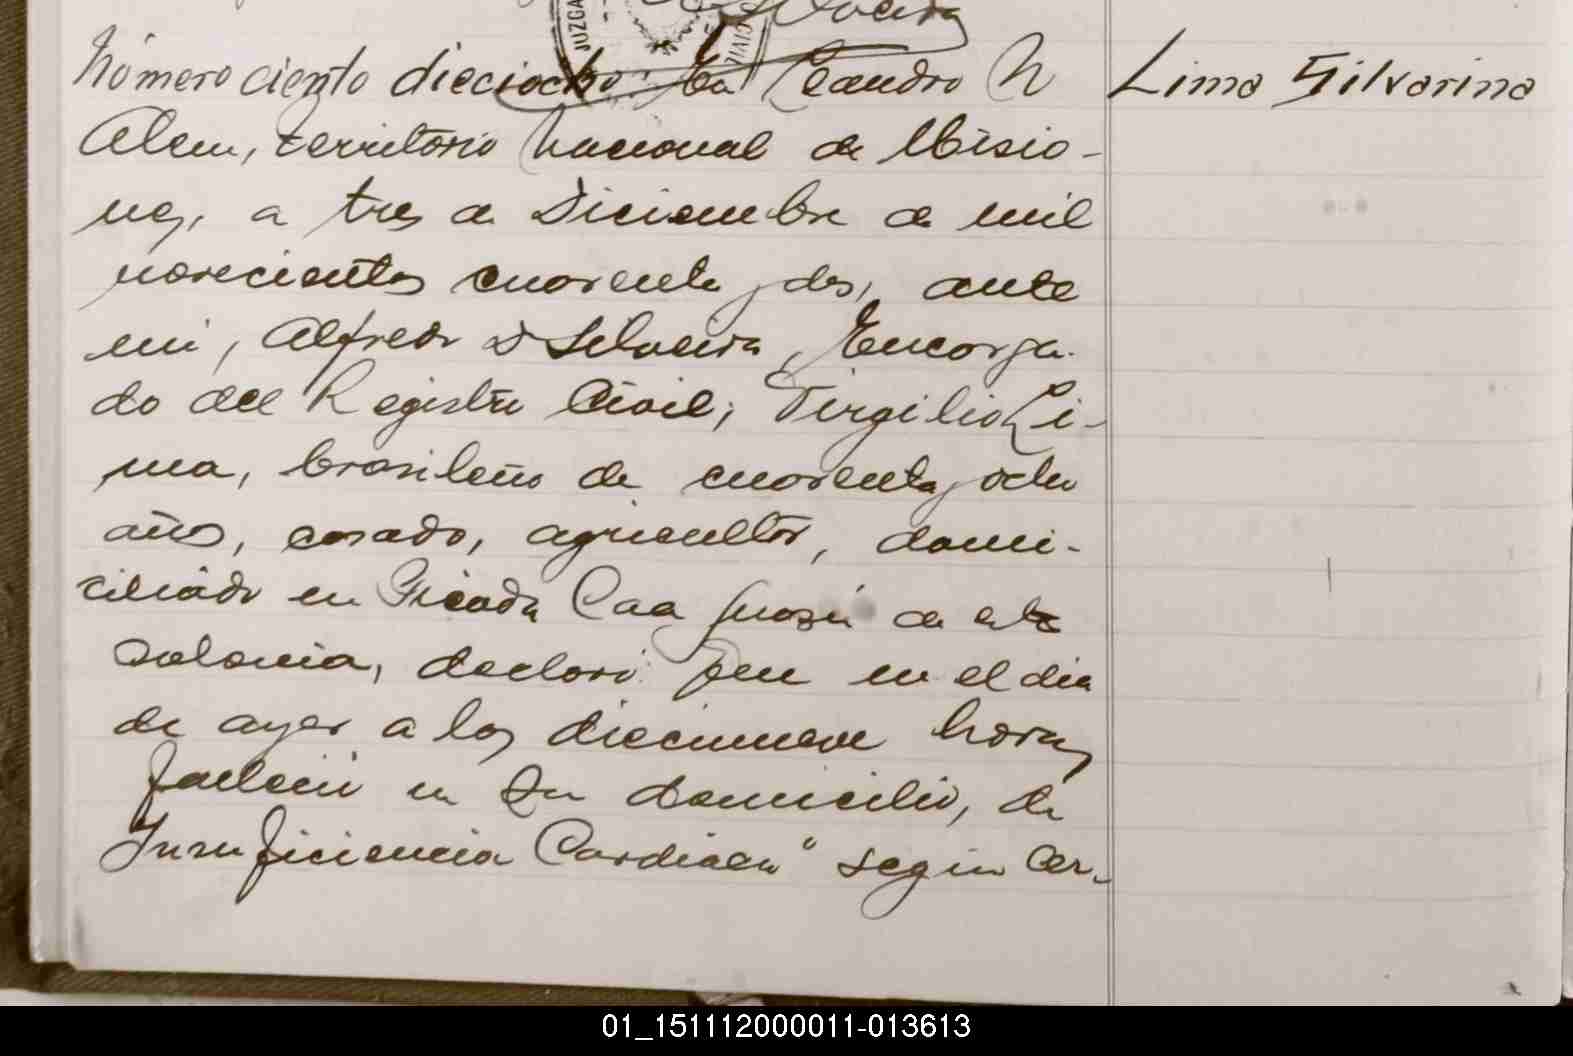 Número ciento dieciocho: En Leandro N
Lima Silvarina
Alem, territorio nacional de Misio-
nes, a tres de Diciembre de mil
novecientos cuarenta y dos, ante
mi, Alfredo D Silveira, Encarga-
do del Registro Civil; Virgilio Li-
ma, brasileño de cuarenta y ocho
años, casado, agricultor, domi-
ciliado en Picada Caa Guazú de esta
colonia, declaró: que en el dia
de ayer a las diecinueve horas
falleció en su domicilio, de
Insuficiencia Cardiaca" según Cer-
JUZGA
CIVIL
01_151112000011-013613